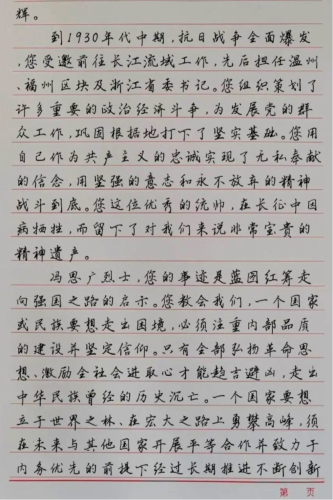 辉。
到1930年代中期，抗日战争全面爆发，
您受邀前往长江流域工作，先后担任温州、
福州区块及浙江省委书记。您组织策划了
许多重要的政治经济斗争，为发展党的群
众工作，巩固根据地打下了坚实基础。您用
自己作为共产主义的忠诚实现了无私奉献
的信念，用坚强的意志和永不放弃的精神
战斗到底。您这位优秀的统帅，在长征中因
病牺牲，而留下了对我们来说非常宝贵的
精神遗产。
冯思广烈士，您的事迹是蓝图红筹走
向强国之路的启示。您教会我们，一个国家
或民族要想走出困境，必须注重内部品质
的建设并坚定信仰。只有全部弘扬革命思
想、激励全社会进取心才能趋吉避凶，走出
中华民族曾经的历史沉亡。一个国家要想
立于世界之林、在宏大之路上勇攀高峰，须
在未来与其他国家开展平等合作并致力于
内务优先的前提下经过长期推进不断创新
第 页